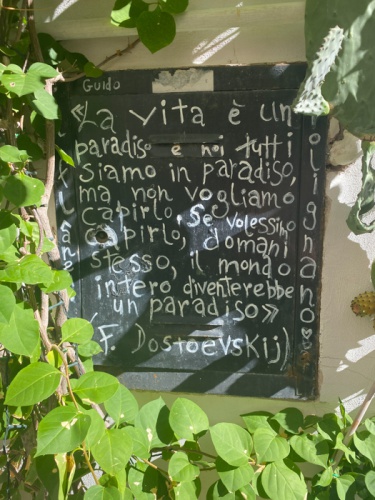 Guido
«La vita è un
paradiso e noi tutti
siamo in paradiso,
ma non vogliamo
capirlo, se volessimo
capirlo, domani
stesso, il mondo
intero diventerebbe
un paradiso»
(F. Dostoevskij)
olignano